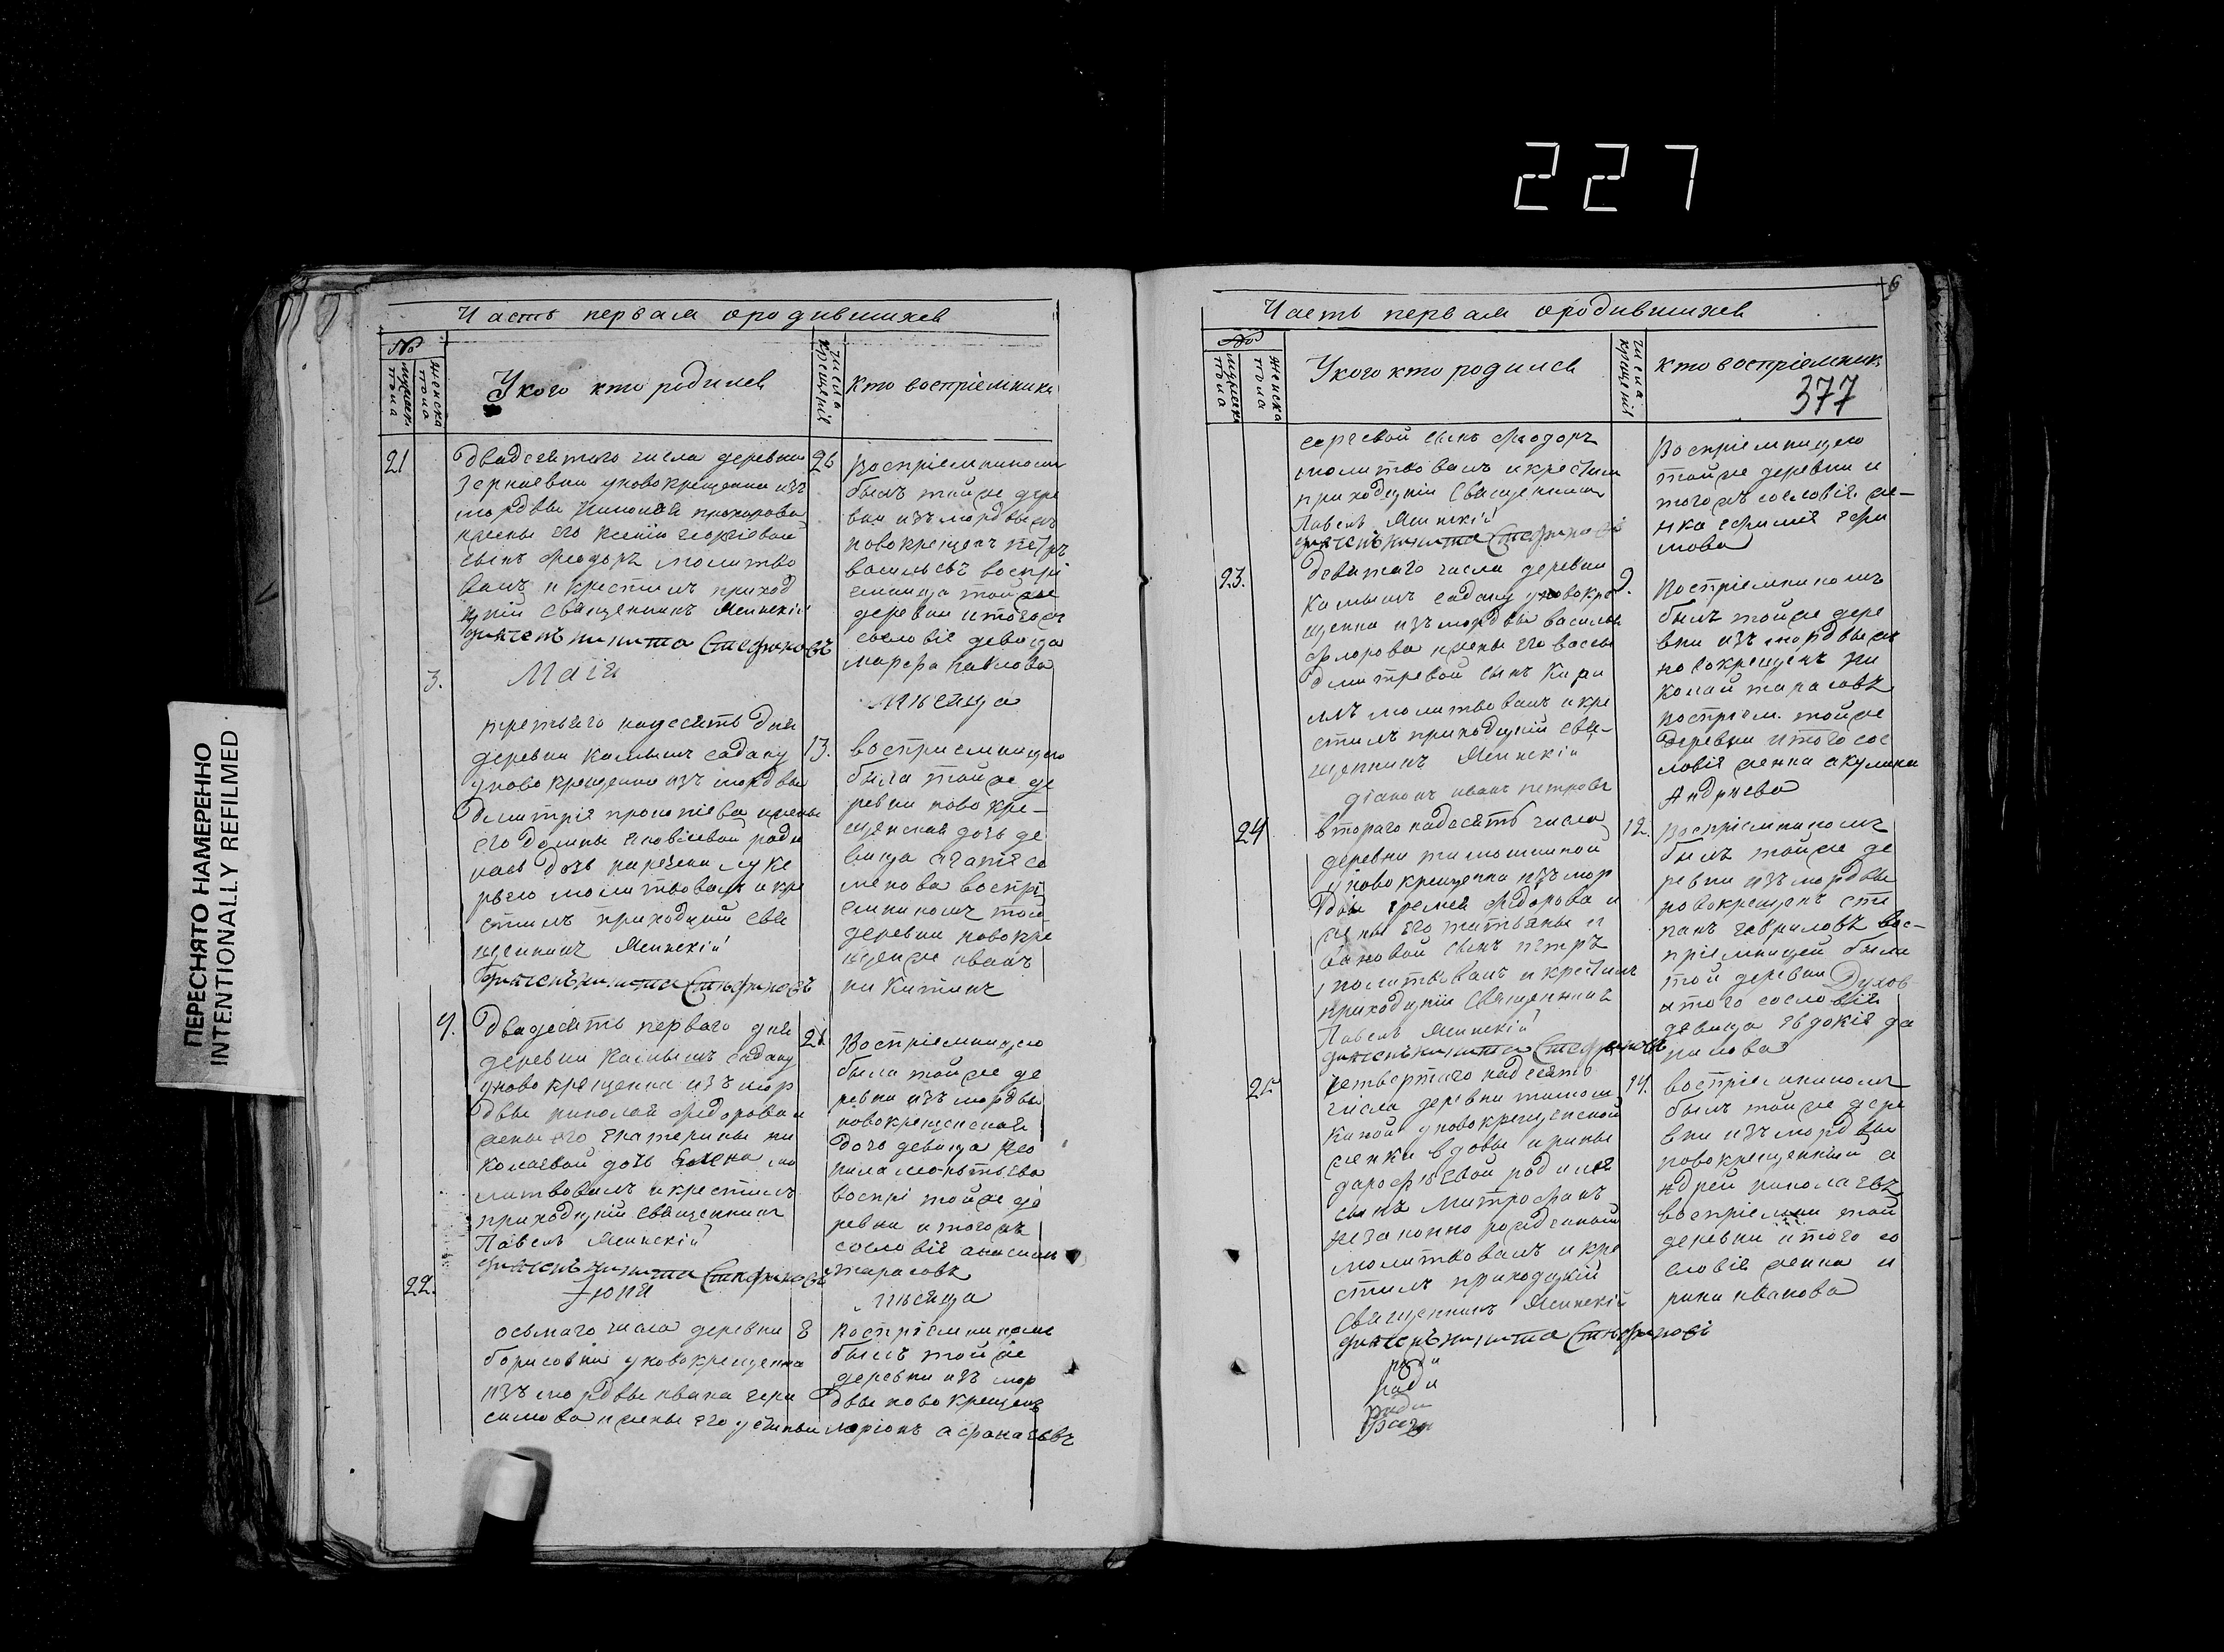 227
ПЕРЕСНЯТО НАМЕРЕННО
INTENTIONALLY REFILMED
Часть первая ородившихся
№
мужеска пола
женска пола
У кого кто родился
числа крещенiя
Кто воспрiемники
21
Двадсятаго числа деревни
уновокрещенна изъ
мордвы прохорова
жены его Ксенiи георгiевой
сынъ Феодоръ молитво
валъ и крестилъ приход
цкiй священникъ Ясинскiй
никита Стефановъ
26
воспрiемникомъ
былъ той же дере
вни изъ мордвы жъ
новокрещенъ петръ
васильевъ воспрi
емница той же
деревни и того ж
сословiе девица
марфа павлова
Маiя
мьсяца
3.
третьяго надесять дня
деревни Камышъ садаку
уновокрещенна изъ мордвы
Дмитрiя жены
его домны родо
лась дочь наречена луке
рьею молитвовалъ и кре
стилъ приходцкiй свя
щенникъ Ясинскiй
никита Стефановъ
13.
воспрiемницею
была той же де
ревни новокре-
щенская дочь де
вица агапiя се
менова воспрi
емникомъ той
деревни новокре
щенже иванъ
никитинъ
4.
Двадесять перваго дня
деревни Камышъ садаку
уновокрещенна изъ мор
двы николая Федорова и
жены его екатерины ни
колаевой дочь мо
литвовалъ и крестилъ
приходцкiй священникъ
Павелъ Ясинскiй
никита Стефановъ
21
Воспрiемницею
была той же де
ревни изъ мордвы
новокрещенская
дочь девица
воспрi той же де
ревни и того жъ
сословiя
тарасовъ
Iюня
мьсяца
22.
осьмаго числа деревни
борисовки уновокрещенна
изъ мордвы ивана гера
симова и жены его устиньи
8
Воспрiемникомъ
былъ той же
деревни изъ мор
двы новокрещенъ
ларiонъ афанасьевъ
6
Часть первая ородившихся
№
мужеска пола
женска пола
У кого кто родился
числа крещенiя
кто воспрiемники
377
сергевой сынъ Феодоръ
молитвовалъ и крестилъ
приходцкiй Священникъ
Павелъ Ясинскiй
никита Стефановъ
Воспрiемницею
той же деревни и
того жъ сословiя же-
нка ефимiя ефи
мова
23.
девятаго числа деревни
Камышъ садаку уновокре
щенна изъ мордвы василья
флорова жены его
дмитревой сынъ Кири
лъ молитвовалъ и кре
стилъ приходцкiй свя-
щенникъ Ясинскiй
дiаконъ иванъ петровъ
9.
Воспрiемникомъ
былъ той же дере
вни изъ мордвы жъ
новокрещенъ ни
колай тарасовъ
воспрiем. той же
деревни и того сос
ловiя женка акулина
Андреева
24
втораго надесять числа
деревни тимошкиной
уновокрещенна изъ мор
двы еремея Федорова и
жены его татьяны и
вановой сынъ петръ
молитвовалъ и крестилъ
приходцкiй священникъ
Павелъ Ясинскiй
никита Стефановъ
12.
Воспрiемникомъ
былъ той же де
ревни изъ мордвы
новокрещенъ сте
панъ гавриловъ вос-
прiемницей была
той деревни Духов
и того сословiя
девица евдокiя да
нилова
25
четвертаго надесять
числа деревни тимош
киной уновокрещенской
женки вдовы ирины
дарофеевой родился
сынъ Митрофанъ
незаконно рожденной
молитвовалъ и кре
стилъ приходцкiй
Священникъ Ясинскiй
никита Стефановъ
14.
воспрiемникомъ
былъ той же дере
вни изъ мордвы
новокрещенный а
ндрей николаевъ
воспрiемни той
деревни и того со
словiя женка и
рина иванова
роди
роди
роди